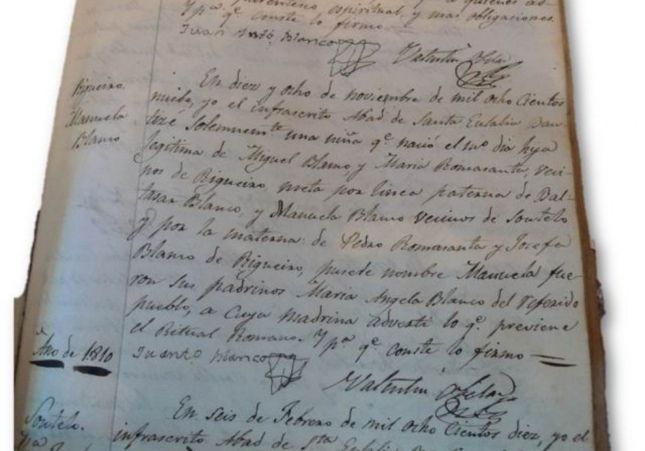 espiritual, y mas obligaciones.
Y pª. qe. Conste lo firmo
Juan Antº. Blanco
Valentin
Rigueiro.
Manuela
Blanco
En diez y ocho de noviembre de mil ocho Cientos
nuebe, yo el infrascrito Abad de Santa Eulalia Bau-
tize Solemnemte. una niña qe. nació el mº. dia hija
legitima de Miguel Blanco, y Maria Romasanta, veci
nos de Rigueiro, nieta por linea paterna de Bal-
tasar Blanco, y Manuela Blanco vecinos de Soutelo
y por la materna: de Pedro Romasanta y Josefa
Blanco de Rigueiro, pusele nombre Manuela fue
ron sus padrinos Maria Angela Blanco del referido
pueblo, a Cuya madrina adverti lo qe. previene
el Ritual Romano. Y pª. qe. Conste lo firmo
Año de 1810
Juan Antº. Blanco
Valentin
Soutelo.
En seis de Febrero de mil ocho Cientos diez, yo el
infrascrito Abad de Sta. Eulalia